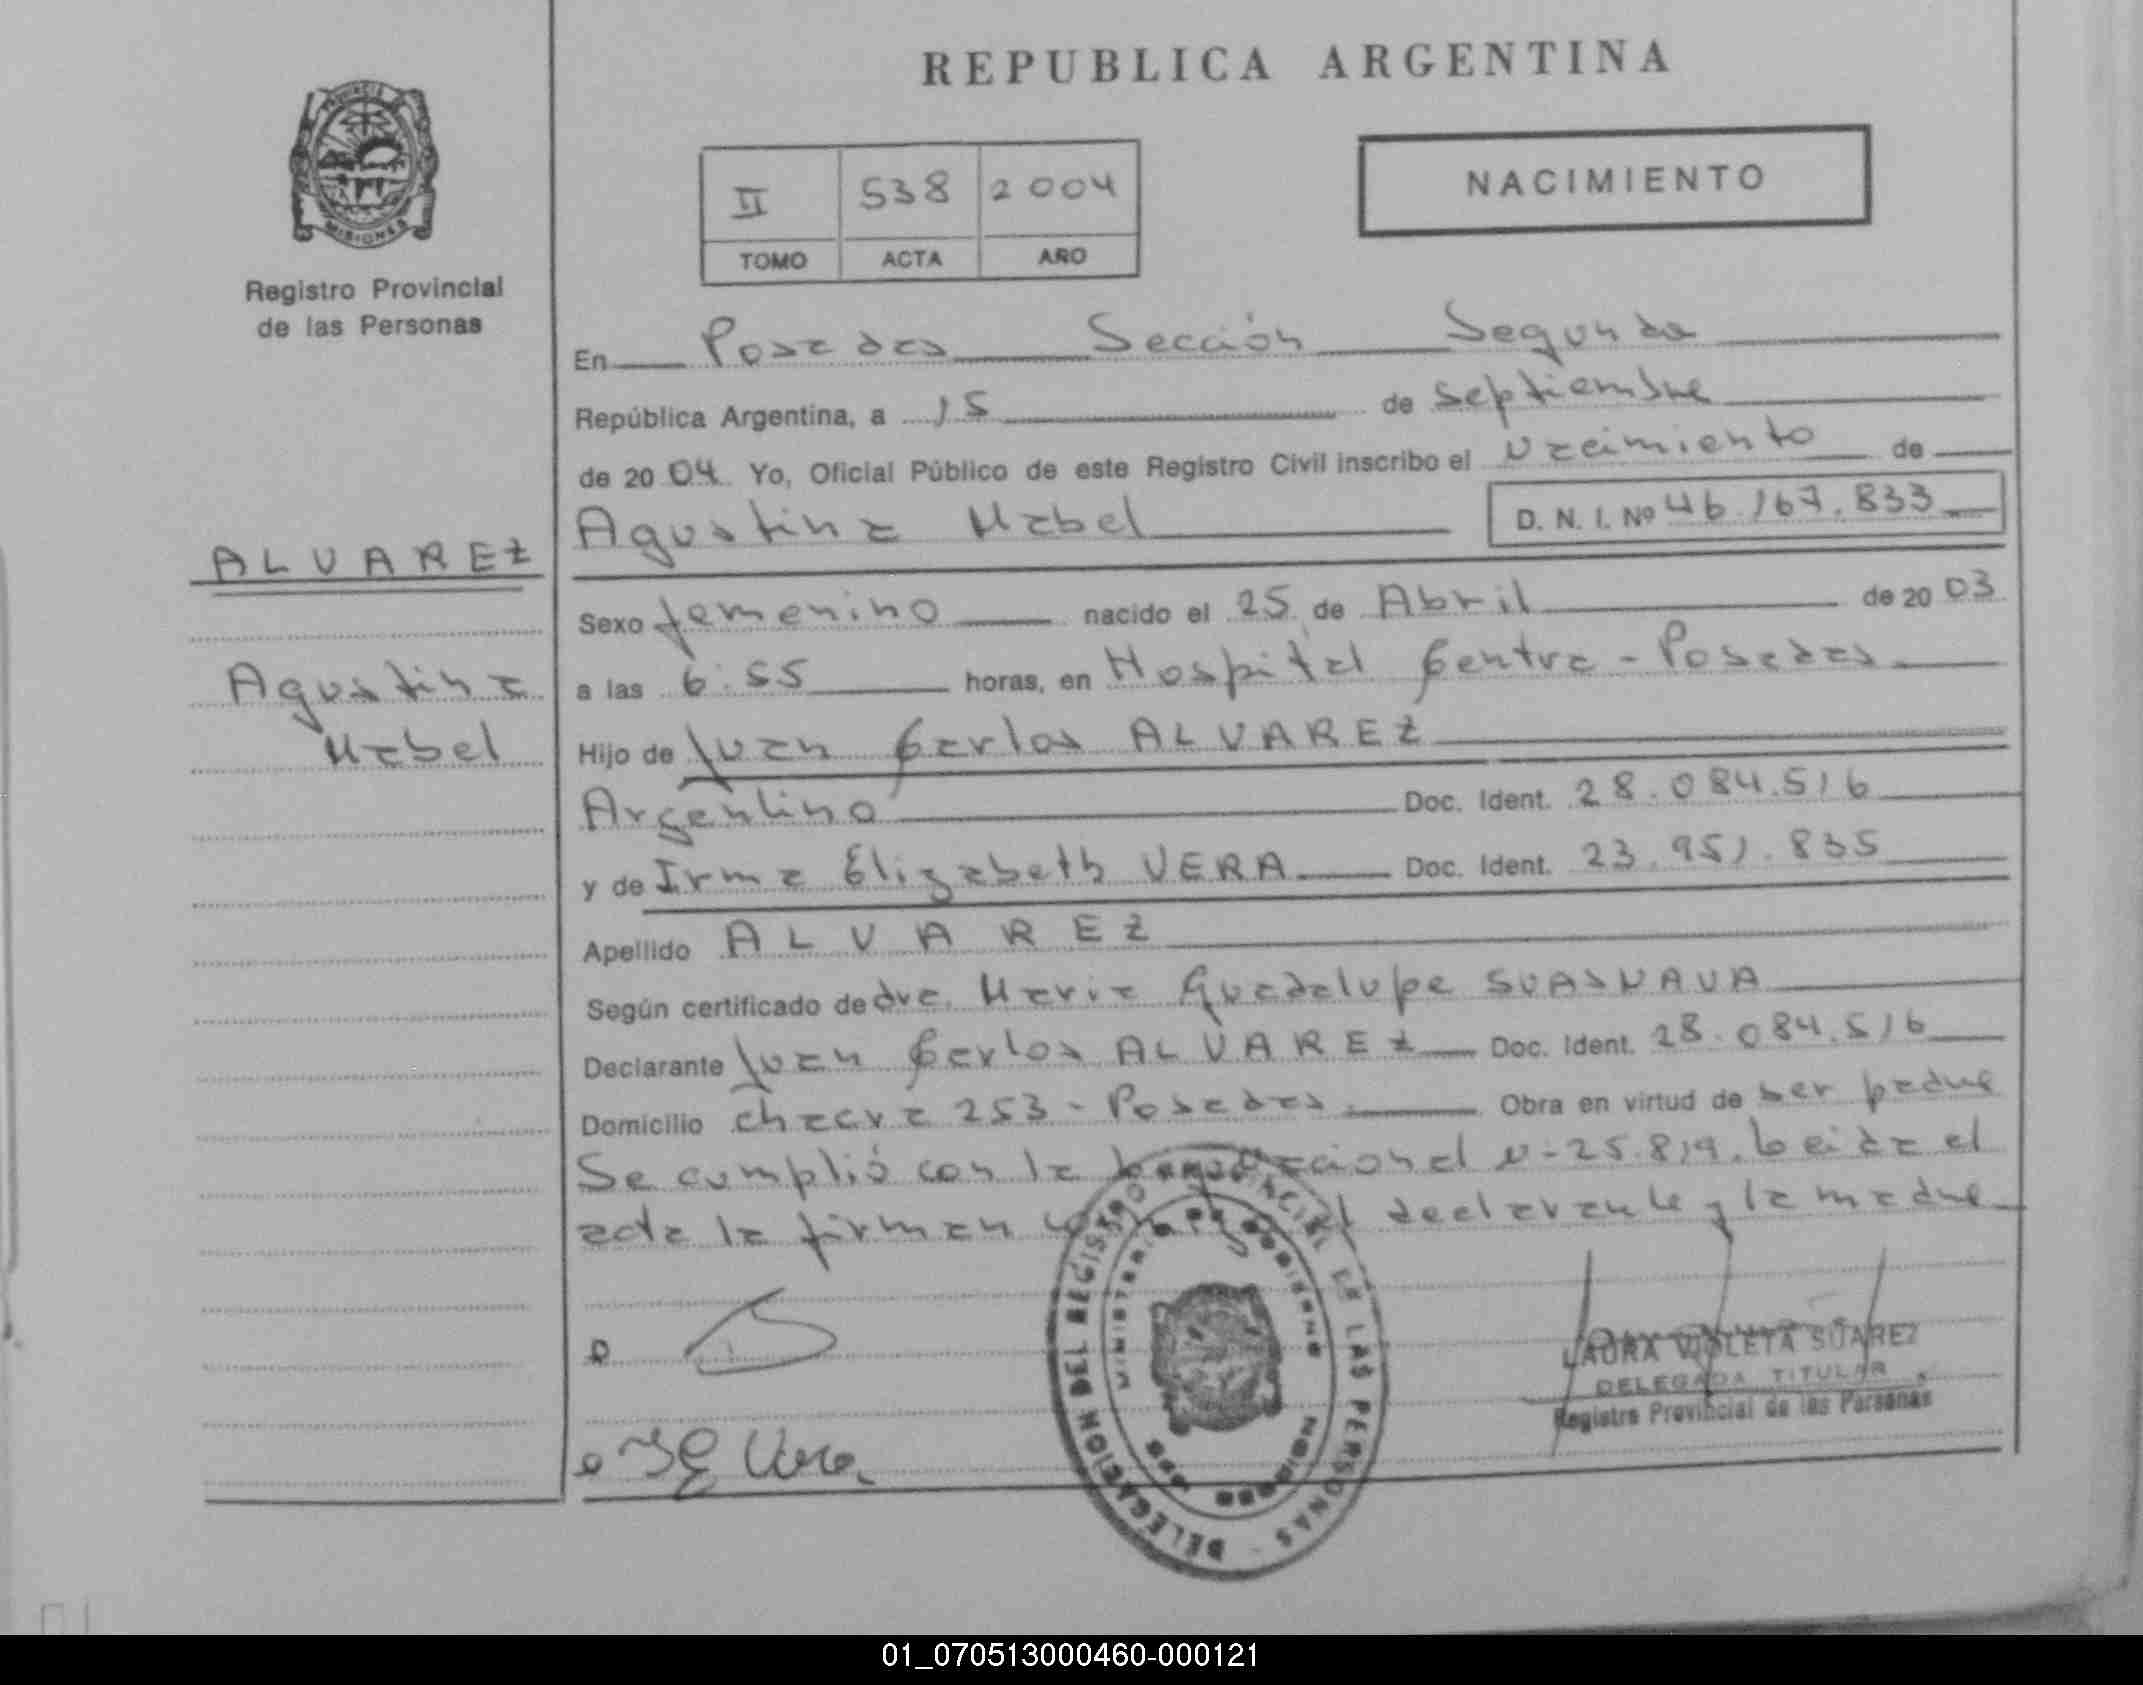 REPUBLICA ARGENTINA
PROVINCIA DE
MISIONES
Registro Provincial
de las Personas
II 538 2004
TOMO ACTA AÑO
NACIMIENTO
ALVAREZ
Agustina
Mabel
En Posadas Sección Segunda
República Argentina, a 15 de Septiembre
de 2004. Yo, Oficial Público de este Registro Civil inscribo el Nacimiento de
Agustina Mabel D. N. I. Nº 46.167.833
Sexo femenino nacido el 25 de Abril de 2003
a las 6:55 horas, en Hospital Centra - Posadas
Hijo de Juan Carlos ALVAREZ
Argentino Doc. Ident. 28.084.516
y de Irma Elizabeth VERA Doc. Ident. 23.951.835
Apellido ALVAREZ
Según certificado de dra. Maria Guadalupe
Declarante Juan Carlos ALVAREZ Doc. Ident. 28.084.516
Domicilio chacra 253 - Posadas. Obra en virtud de ser padre
Se cumplió con la N-25.819. Leida el
acta la firman el declarante y la madre
DELEGACION DEL REGISTRO PROVINCIAL DE LAS PERSONAS
MINISTERIO DE GOBIERNO
LAURA VIOLETA SUAREZ
DELEGADA TITULAR
Registro Provincial de las Personas
Vera
01_070513000460-000121